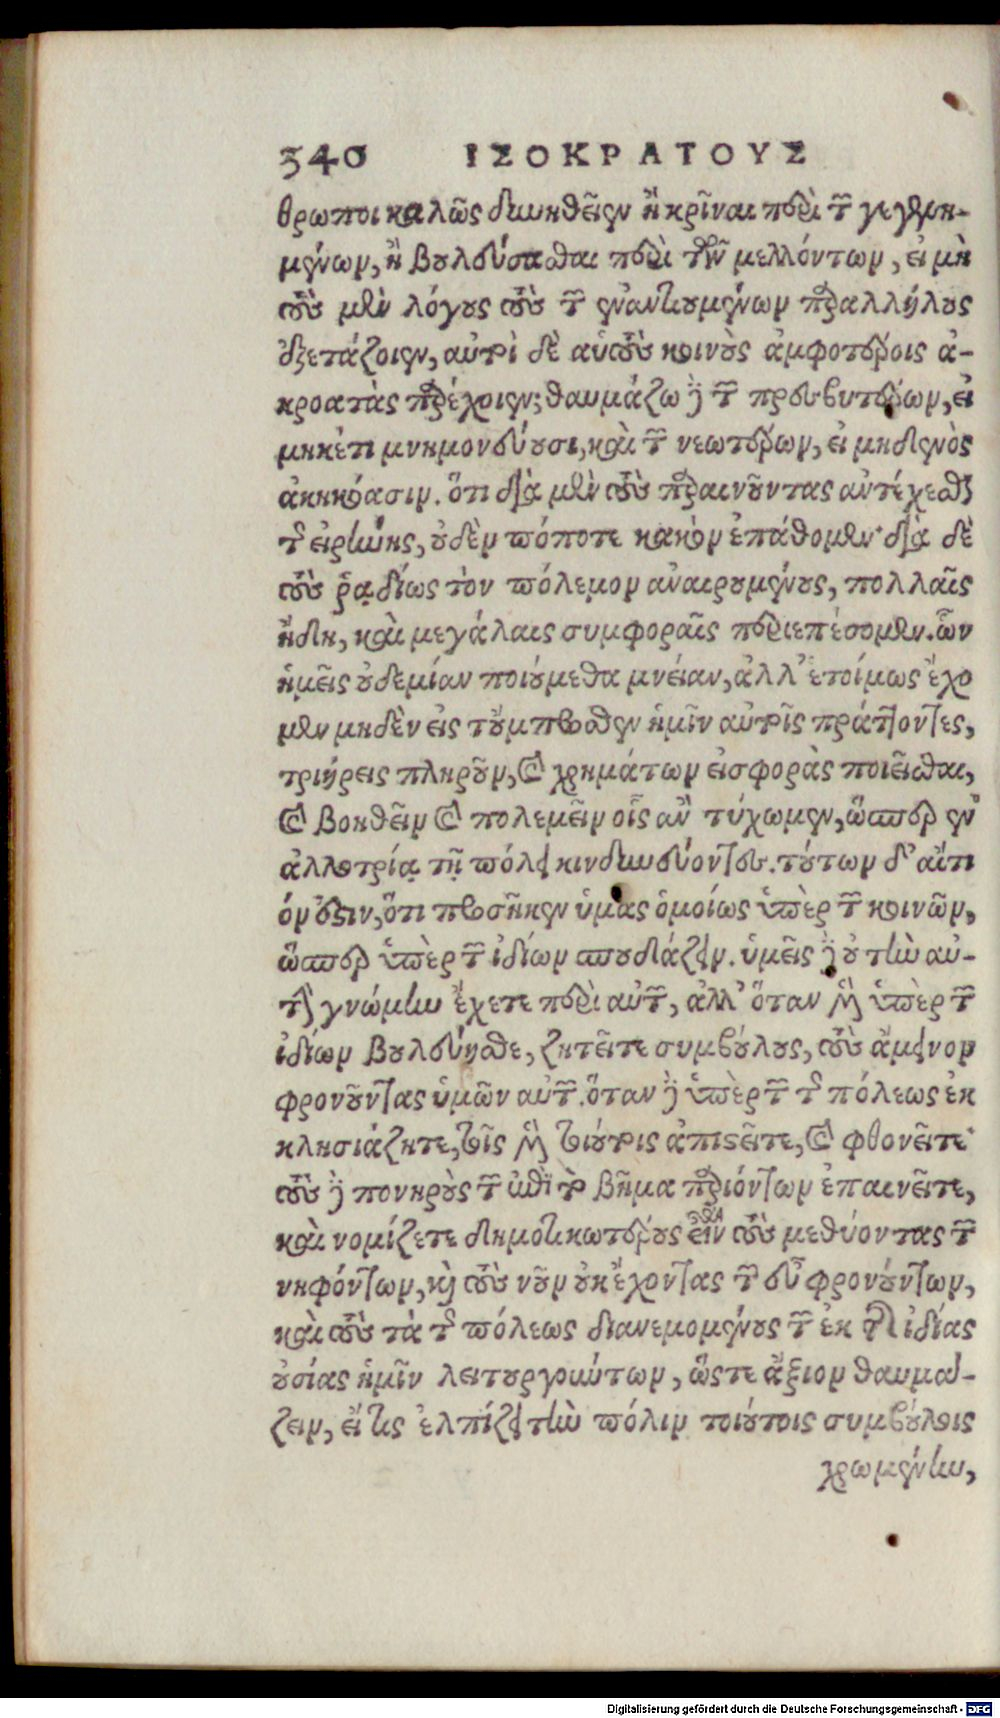 340 ΙΣΟΚΡΑΤΟΥΣ
θρωποι καλῶς δυνηθεῖεν ἢ κρῖναι περὶ τῶν γεγενη-
μένων, ἢ βουλεύσασθαι περὶ τῶν μελλόντων, εἰ μὴ
τοὺς μὲν λόγους τοὺς τῶν ἐναντιουμένων παραλλήλους
ἐξετάζοιεν, αὐτοὶ δὲ αὑτοὺς κοινοὺς ἀμφοτέροις ἀ-
κροατὰς παρέχοιεν; θαυμάζω δὲ τῶν πρεσβυτέρων, εἰ
μηκέτι μνημονεύουσι, καὶ τῶν νεωτέρων, εἰ μηδενὸς
ἀκηκόασιν. ὅτι διὰ μὲν τοὺς παραινοῦντας ἀντέχεσθαι
τῆς εἰρήνης, οὐδὲν πώποτε κακὸν ἐπάθομεν· διὰ δὲ
τοὺς ῥᾳδίως τὸν πόλεμον ἀναιρουμένους, πολλαῖς
ἤδη, καὶ μεγάλαις συμφοραῖς περιεπέσομεν. ὧν
ἡμεῖς οὐδεμίαν ποιούμεθα μνείαν, ἀλλ' ἑτοίμως ἔχο
μεν μηδὲν εἰς τοὔμπροσθεν ἡμῖν αὐτοῖς πράττοντες,
τριήρεις πληροῦν, καὶ χρημάτων εἰσφορὰς ποιεῖσθαι,
καὶ βοηθεῖν καὶ πολεμεῖν οἷς ἂν τύχωμεν, ὥσπερ ἐν
ἀλλοτρίᾳ τῇ πόλει κινδυνεύοντες. τούτων δ' αἴτι
όν ἐστιν, ὅτι προσῆκεν ὑμας ὁμοίως ὑπὲρ τῶν κοινῶν,
ὥσπερ ὑπὲρ τῶν ἰδίων σπουδάζειν. ὑμεῖς δὲ οὐ τὴν αὐ-
τὴν γνώμην ἔχετε περὶ αὐτῶν, ἀλλ' ὅταν μὲν ὑπὲρ τῶν
ἰδίων βουλεύησθε, ζητεῖτε συμβούλους, τοὺς ἄμεινον
φρονοῦντας ὑμῶν αὐτῶν. ὅταν δὲ ὑπὲρ τῶν τῆς πόλεως ἐκ
κλησιάζητε, τοῖς μὲν τοιούτοις ἀπιστεῖτε, καὶ φθονεῖτε·
τοὺς δὲ πονηροὺς τῶν ἐπὶ τὸ βῆμα παριόντων ἐπαινεῖτε,
καὶ νομίζετε δημοτικωτέρους εἶναι τοὺς μεθύοντας τῶν
νηφόντων, καὶ τοὺς νοῦν οὐκ ἔχοντας τῶν εὖ φρονούντων,
καὶ τοὺς τὰ τῆς πόλεως διανεμομένους τῶν ἐκ τῆς ἰδίας
οὐσίας ἡμῖν λειτουργούντων, ὥστε ἄξιον θαυμά-
ζειν, εἴ τις ἐλπίζει τὴν πόλιν τοιούτοις συμβούλοις
χρωμένην,
Digitalisierung gefördert durch die Deutsche Forschungsgemeinschaft - DFG